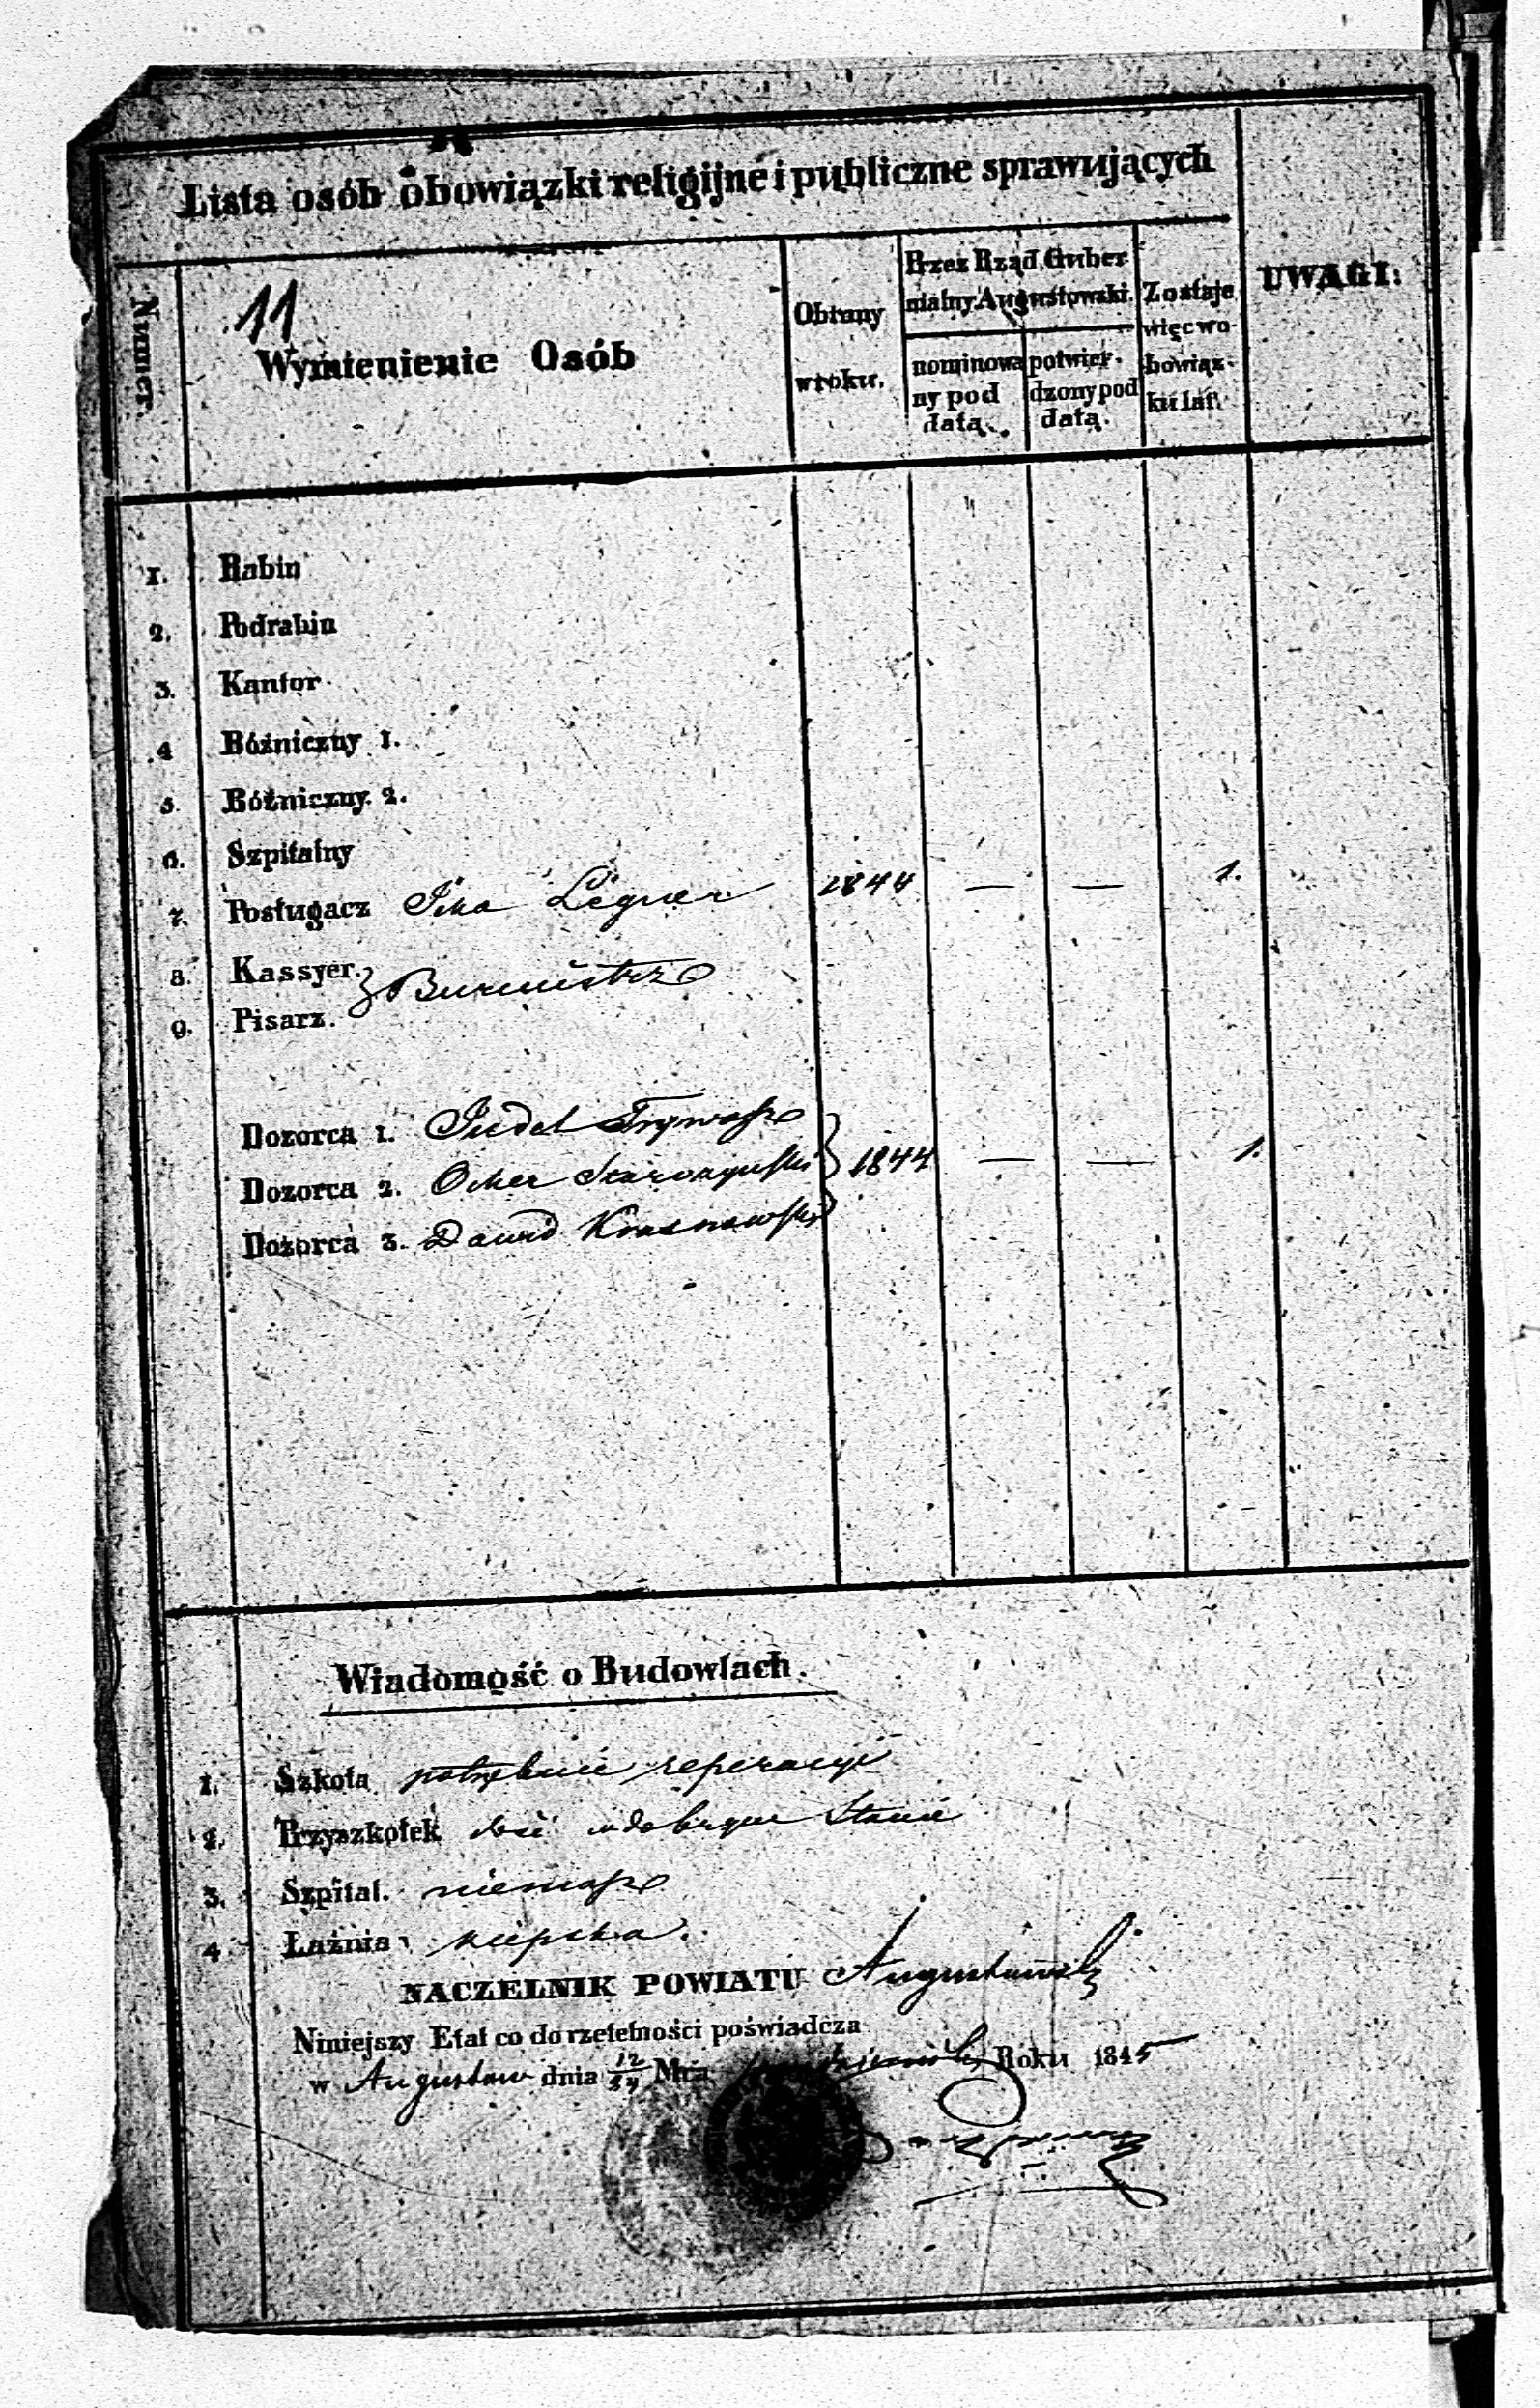 Lista osób obowiązki religijne i publiczne sprawujących
Numer.
11
Wymienienie Osób
Obrany
w roku.
Przez Rząd Guber
nialny Augustowski.
nominowa
ny pod
datą.
potwier-
dzony pod
datą.
Zostaje
więc w o-
bowiąz-
ku lat.
UWAGI:
1. Rabin
2. Podrabin
3. Kantor
4 Bóżniczny 1.
5. Bóżniczny 2.
6. Szpitalny
7. Posługacz Icka Legner 1844 — — 1.
8. Kassyer.
Burmistrz
9. Pisarz.
Dozorca 1. Judel
Dozorca 2. 1844 — — 1.
Dozorca 3. Dawid Krasnowski
Wiadomość o Budowlach.
1. Szkoła potrzebuie reperacyi
2. Przyszkołek dość w dobrym Stanie
3. Szpital. niemasz
4 Łaźnia kiepska.
NACZELNIK POWIATU Augustowski
Niniejszy Etat co do rzetelności poświadcza
w Augustow dnia 12/24 Mca Roku 1845